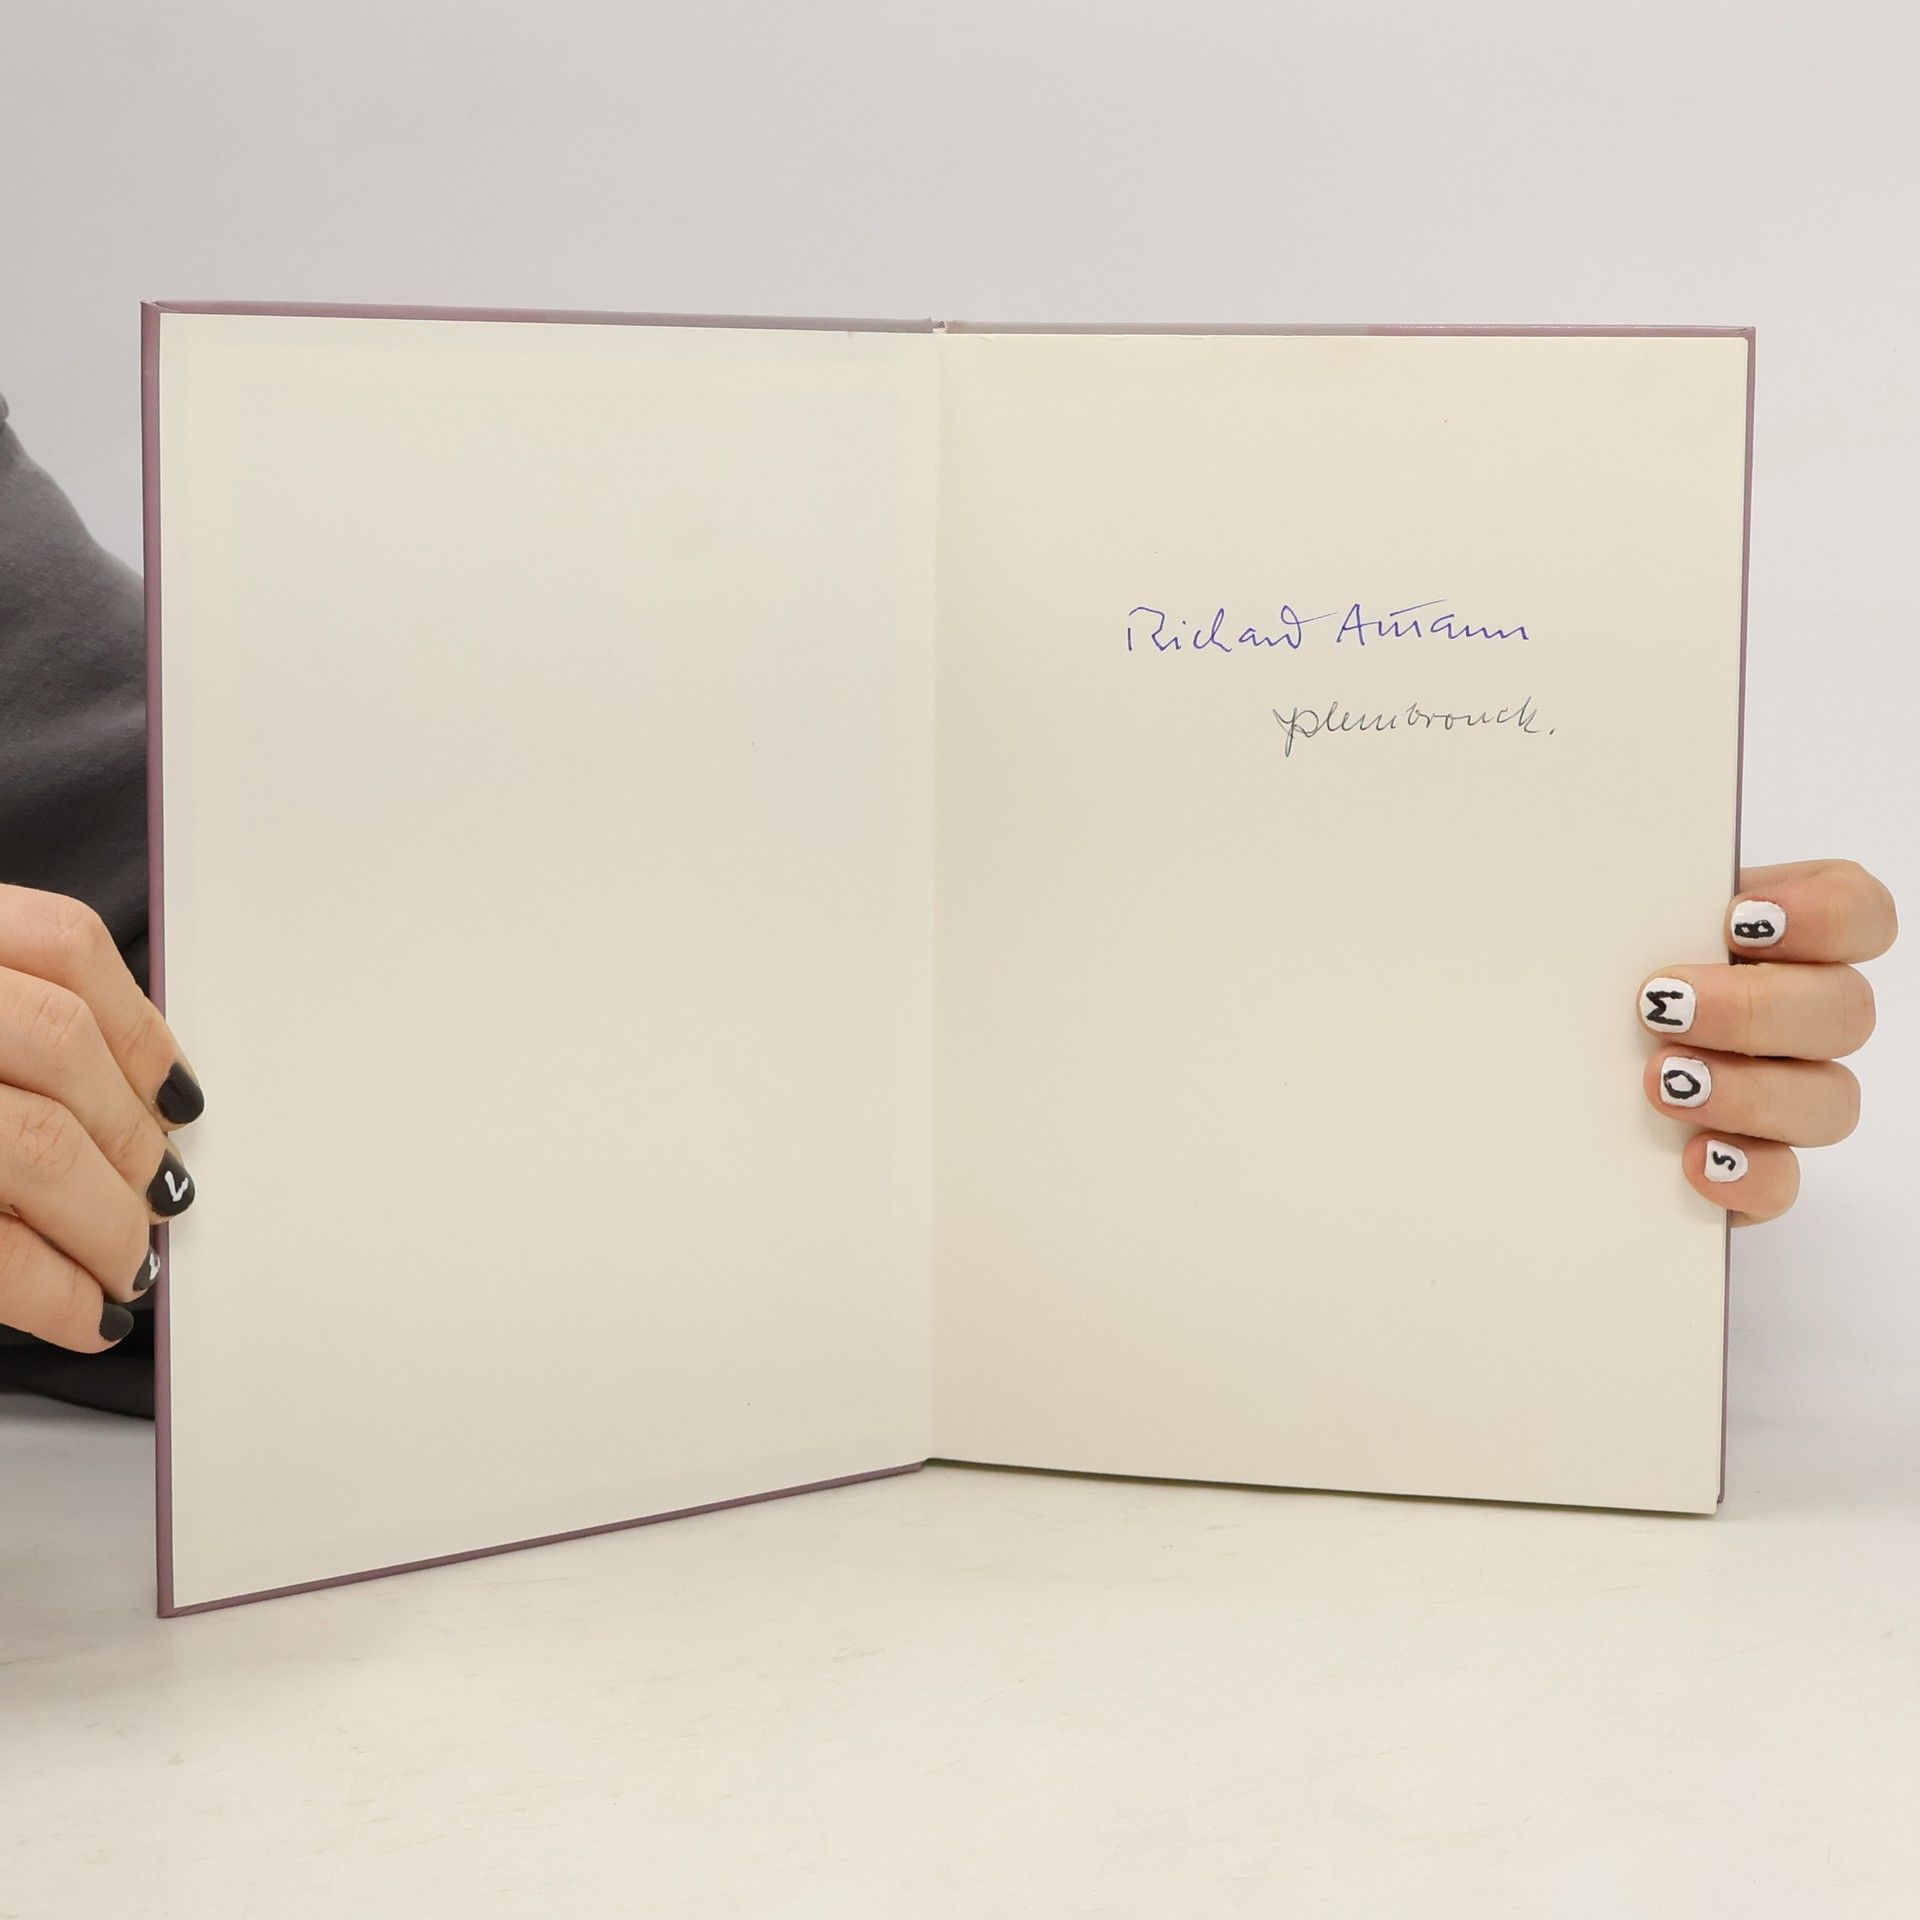 Richard Aumann
Plembrouck.
B
M
O
S